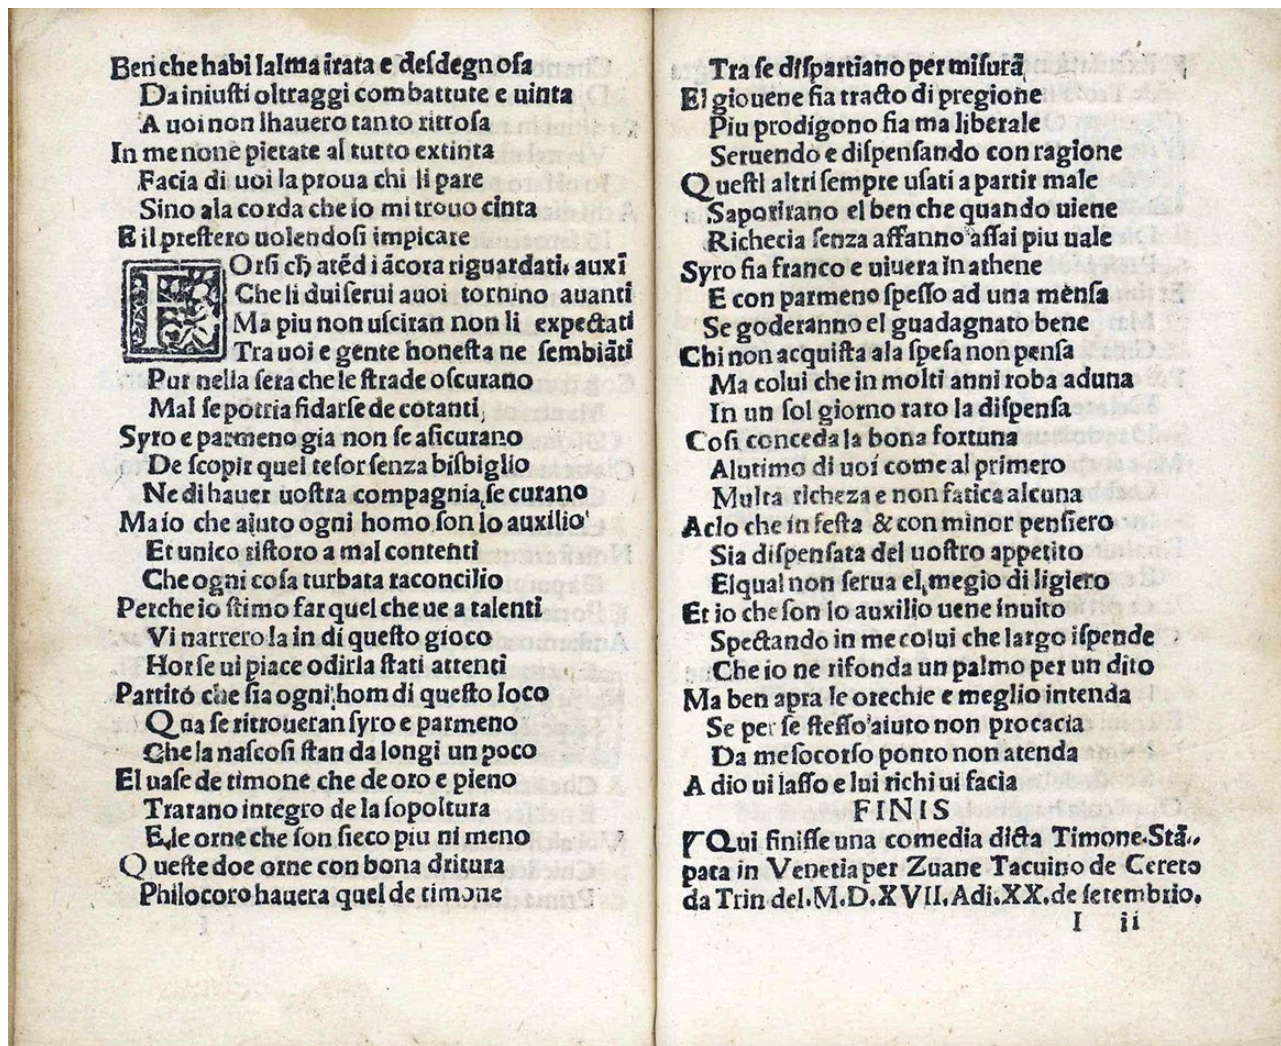 Ben che habi lalma irata e desdegnosa
Da iniusti oltraggi combattute e uinta
A uoi non lhauero tanto ritrosa
In me none pietate al tutto extinta
Facia di uoi la proua chi li pare
Sino ala corda che io mi trouo cinta
E il prestero uolendosi impicare
FOrsi ch̄ atēd i ācora riguardati, auxī
Che li dui serui auoi tornino auanti
Ma piu non usciran non li expectati
Tra uoi e gente honesta ne sembiāti
Pur nella sera che le strade oscurano
Mal se potria fidarse de cotanti
Syro e parmeno gia non se asicurano
De scopir quel tesor senza bisbiglio
Ne di hauer uostra compagnia se curano
Ma io che aiuto ogni homo son lo auxilio
Et unico ristoro a mal contenti
Che ogni cosa turbata raconcilio
Perche io stimo far quel che ue a talenti
Vi narrero la in di questo gioco
Hor se ui piace odirla stati attenti
Partito che sia ogni hom di questo loco
Qua se ritroueran syro e parmeno
Che la nascosi stan da longi un poco
El uase de timone che de oro e pieno
Trarano integro de la sopoltura
E le orne che son sieco piu ni meno
Queste doe orne con bona dritura
Philocoro hauera quel de timone
Tra se dispartiano per misurā
El giouene fia tracto di pregione
Piu prodigo no fia ma liberale
Seruendo e dispensando con ragione
Questi altri sempre usati a partir male
Saporirano el ben che quando uiene
Richecia senza affanno assai piu uale
Syro fia franco e uiuera in athene
E con parmeno spesso ad una mensa
Se goderanno el guadagnato bene
Chi non acquista ala spesa non pensa
Ma colui che in molti anni roba aduna
In un sol giorno raro la dispensa
Cosi conceda la bona fortuna
Alutimo di uoi come al primero
Multa richeza e non fatica alcuna
Aclo che in festa & con minor pensiero
Sia dispensata del uostro appetito
Elqual non serua el megio di ligiero
Et io che son lo auxilio uene inuito
Spectando in me colui che largo ispende
Che io ne rifonda un palmo per un dito
Ma ben apra le orechie e meglio intenda
Se per se stesso aiuto non procacia
Da me socorso ponto non atenda
A dio ui lasso e lui richi ui facia
FINIS
Qui finisse una comedia dicta Timone. Stā,
pata in Venetia per Zuane Tacuino de Cereto
da Trin del. M.D.XVII. Adi. XX. de setembrio.
I ii